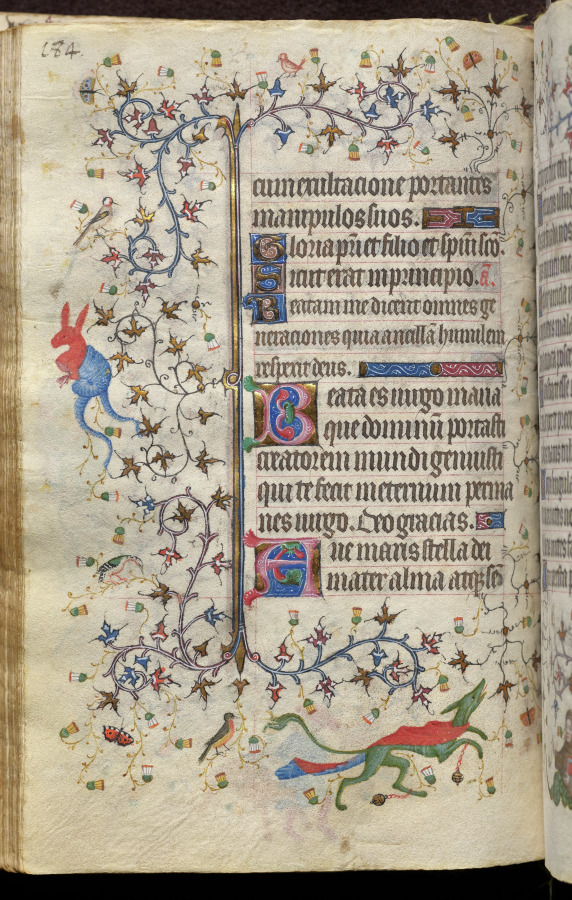 184.
cum exultacione portantes
manipulos suos.
Gloria pr̄i et filio et spiri sc̄o.
Sicut erat in principio. ā.
Beatam me dicent omnes ge
neraciones quia ancillā humilem
respexit deus.
Beata es uirgo maria
que dominū portasti
creatorem mundi genuisti
qui te fecit in eternum perma
nes uirgo. Deo gracias.
Aue maris stella dei
mater alma atqꝫ se